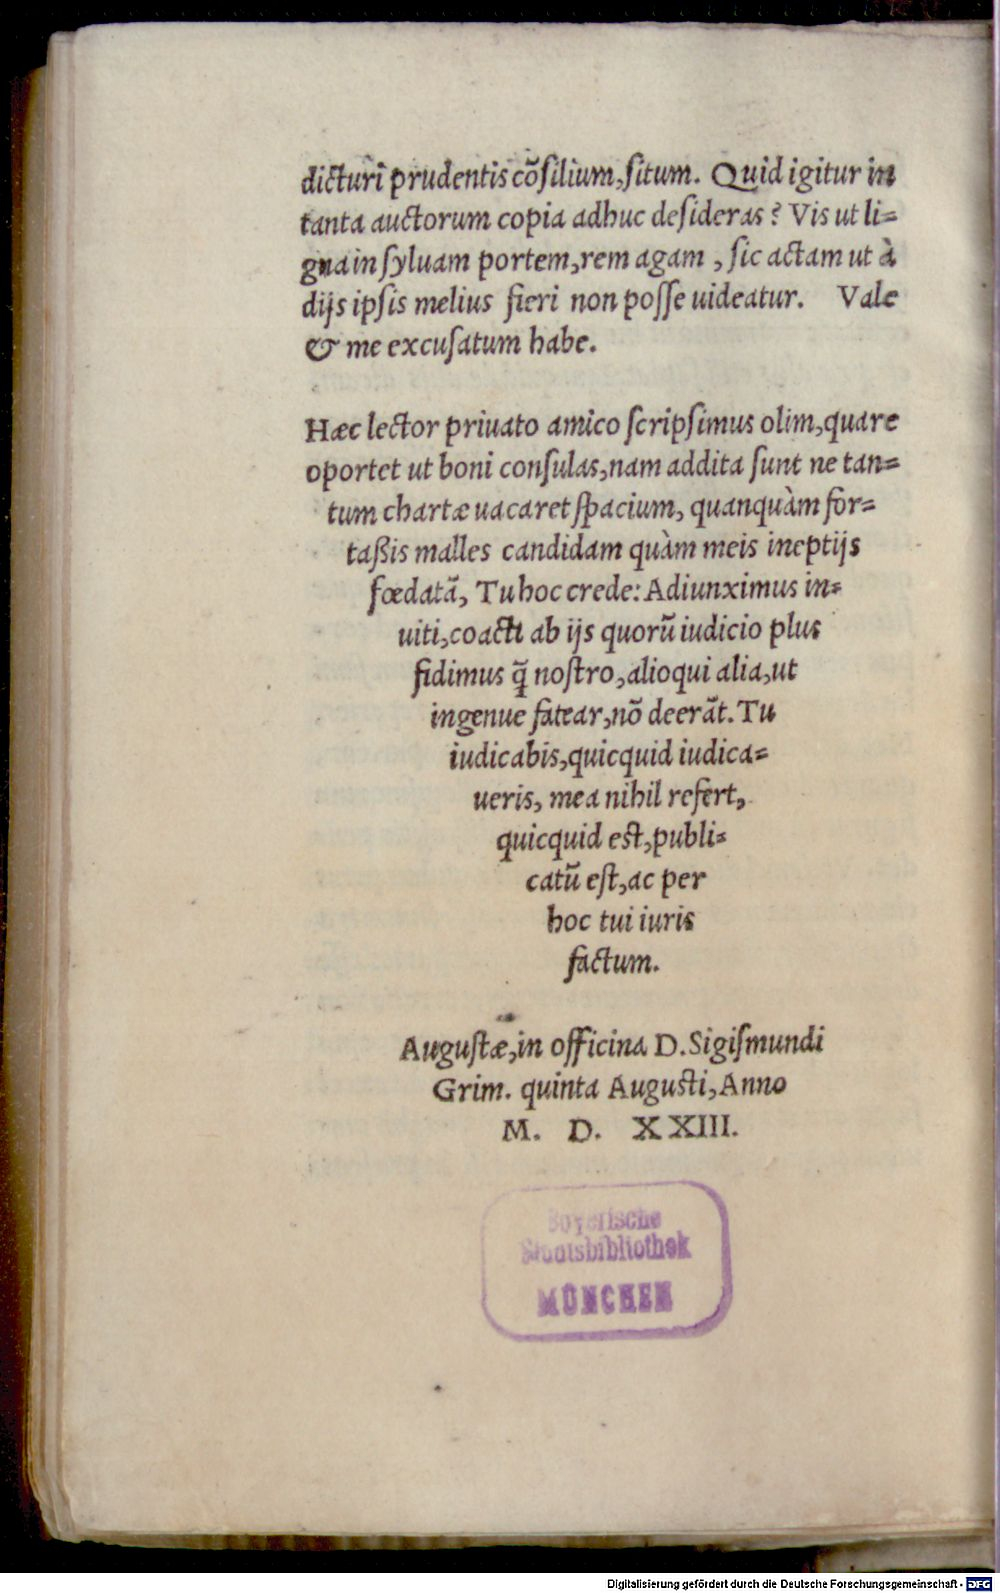 dicturi prudentis cõsilium, situm. Quid igitur in
tanta auctorum copia adhuc desideras? Vis ut li=
gna in syluam portem, rem agam, sic actam ut à
dijs ipsis melius fieri non posse uideatur. Vale
& me excusatum habe.
Hæc lector priuato amico scripsimus olim, quare
oportet ut boni consulas, nam addita sunt ne tan=
tum chartæ uacaret spacium, quanquàm for=
taßis malles candidam quàm meis ineptijs
fœdatã, Tu hoc crede: Adiunximus in=
uiti, coacti ab ijs quorũ iudicio plus
fidimus q̃ nostro, alioqui alia, ut
ingenue fatear, nõ deerãt. Tu
iudicabis, quicquid iudica=
ueris, mea nihil refert,
quicquid est, publi=
catũ est, ac per
hoc tui iuris
factum.
Augustæ, in officina D. Sigismundi
Grim. quinta Augusti, Anno
M. D. XXIII.
Bayerische
Staatsbibliothek
MÜNCHEN
Digitalisierung gefördert durch die Deutsche Forschungsgemeinschaft - DFG